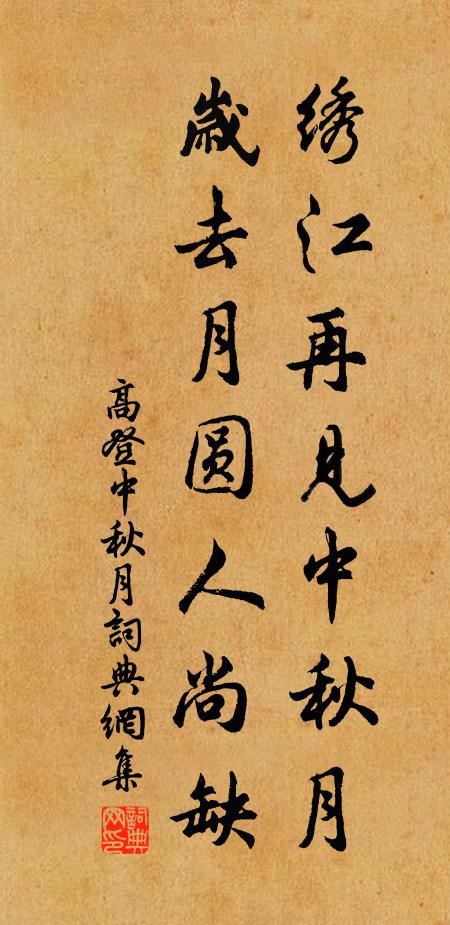 绣江再见中秋月
歳去月圆人尚缺
高登中秋月詞典網集
詞典网印